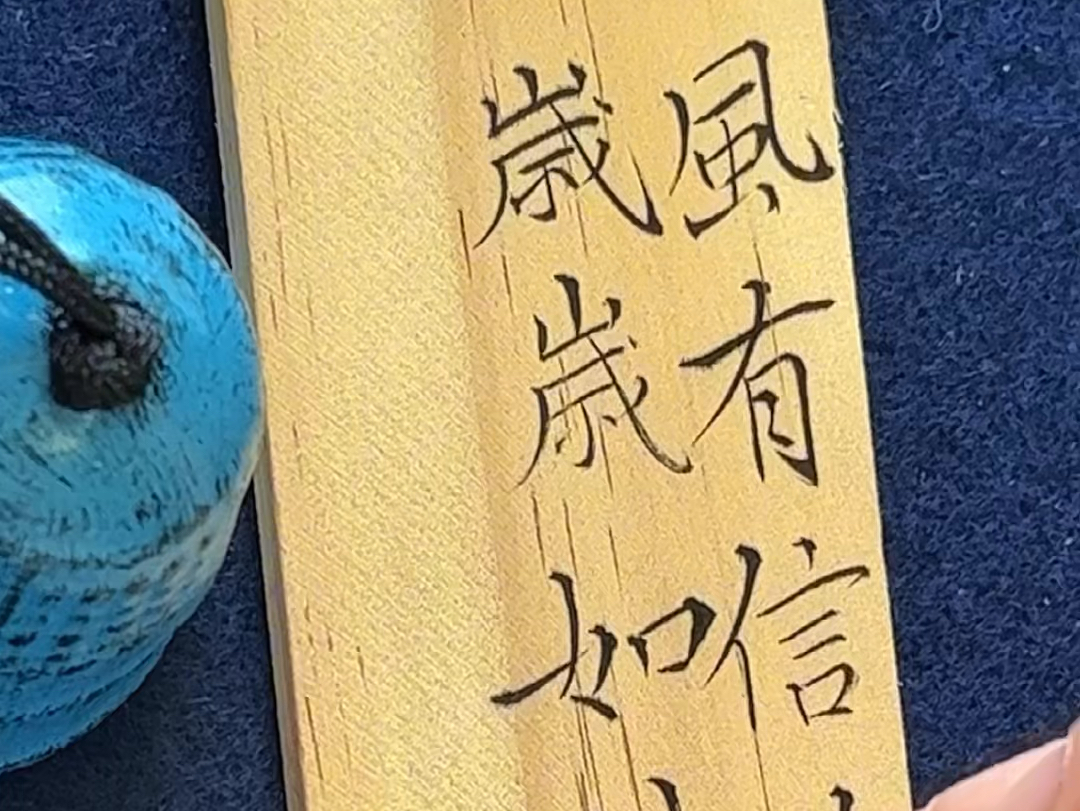 風有信
歲歲如